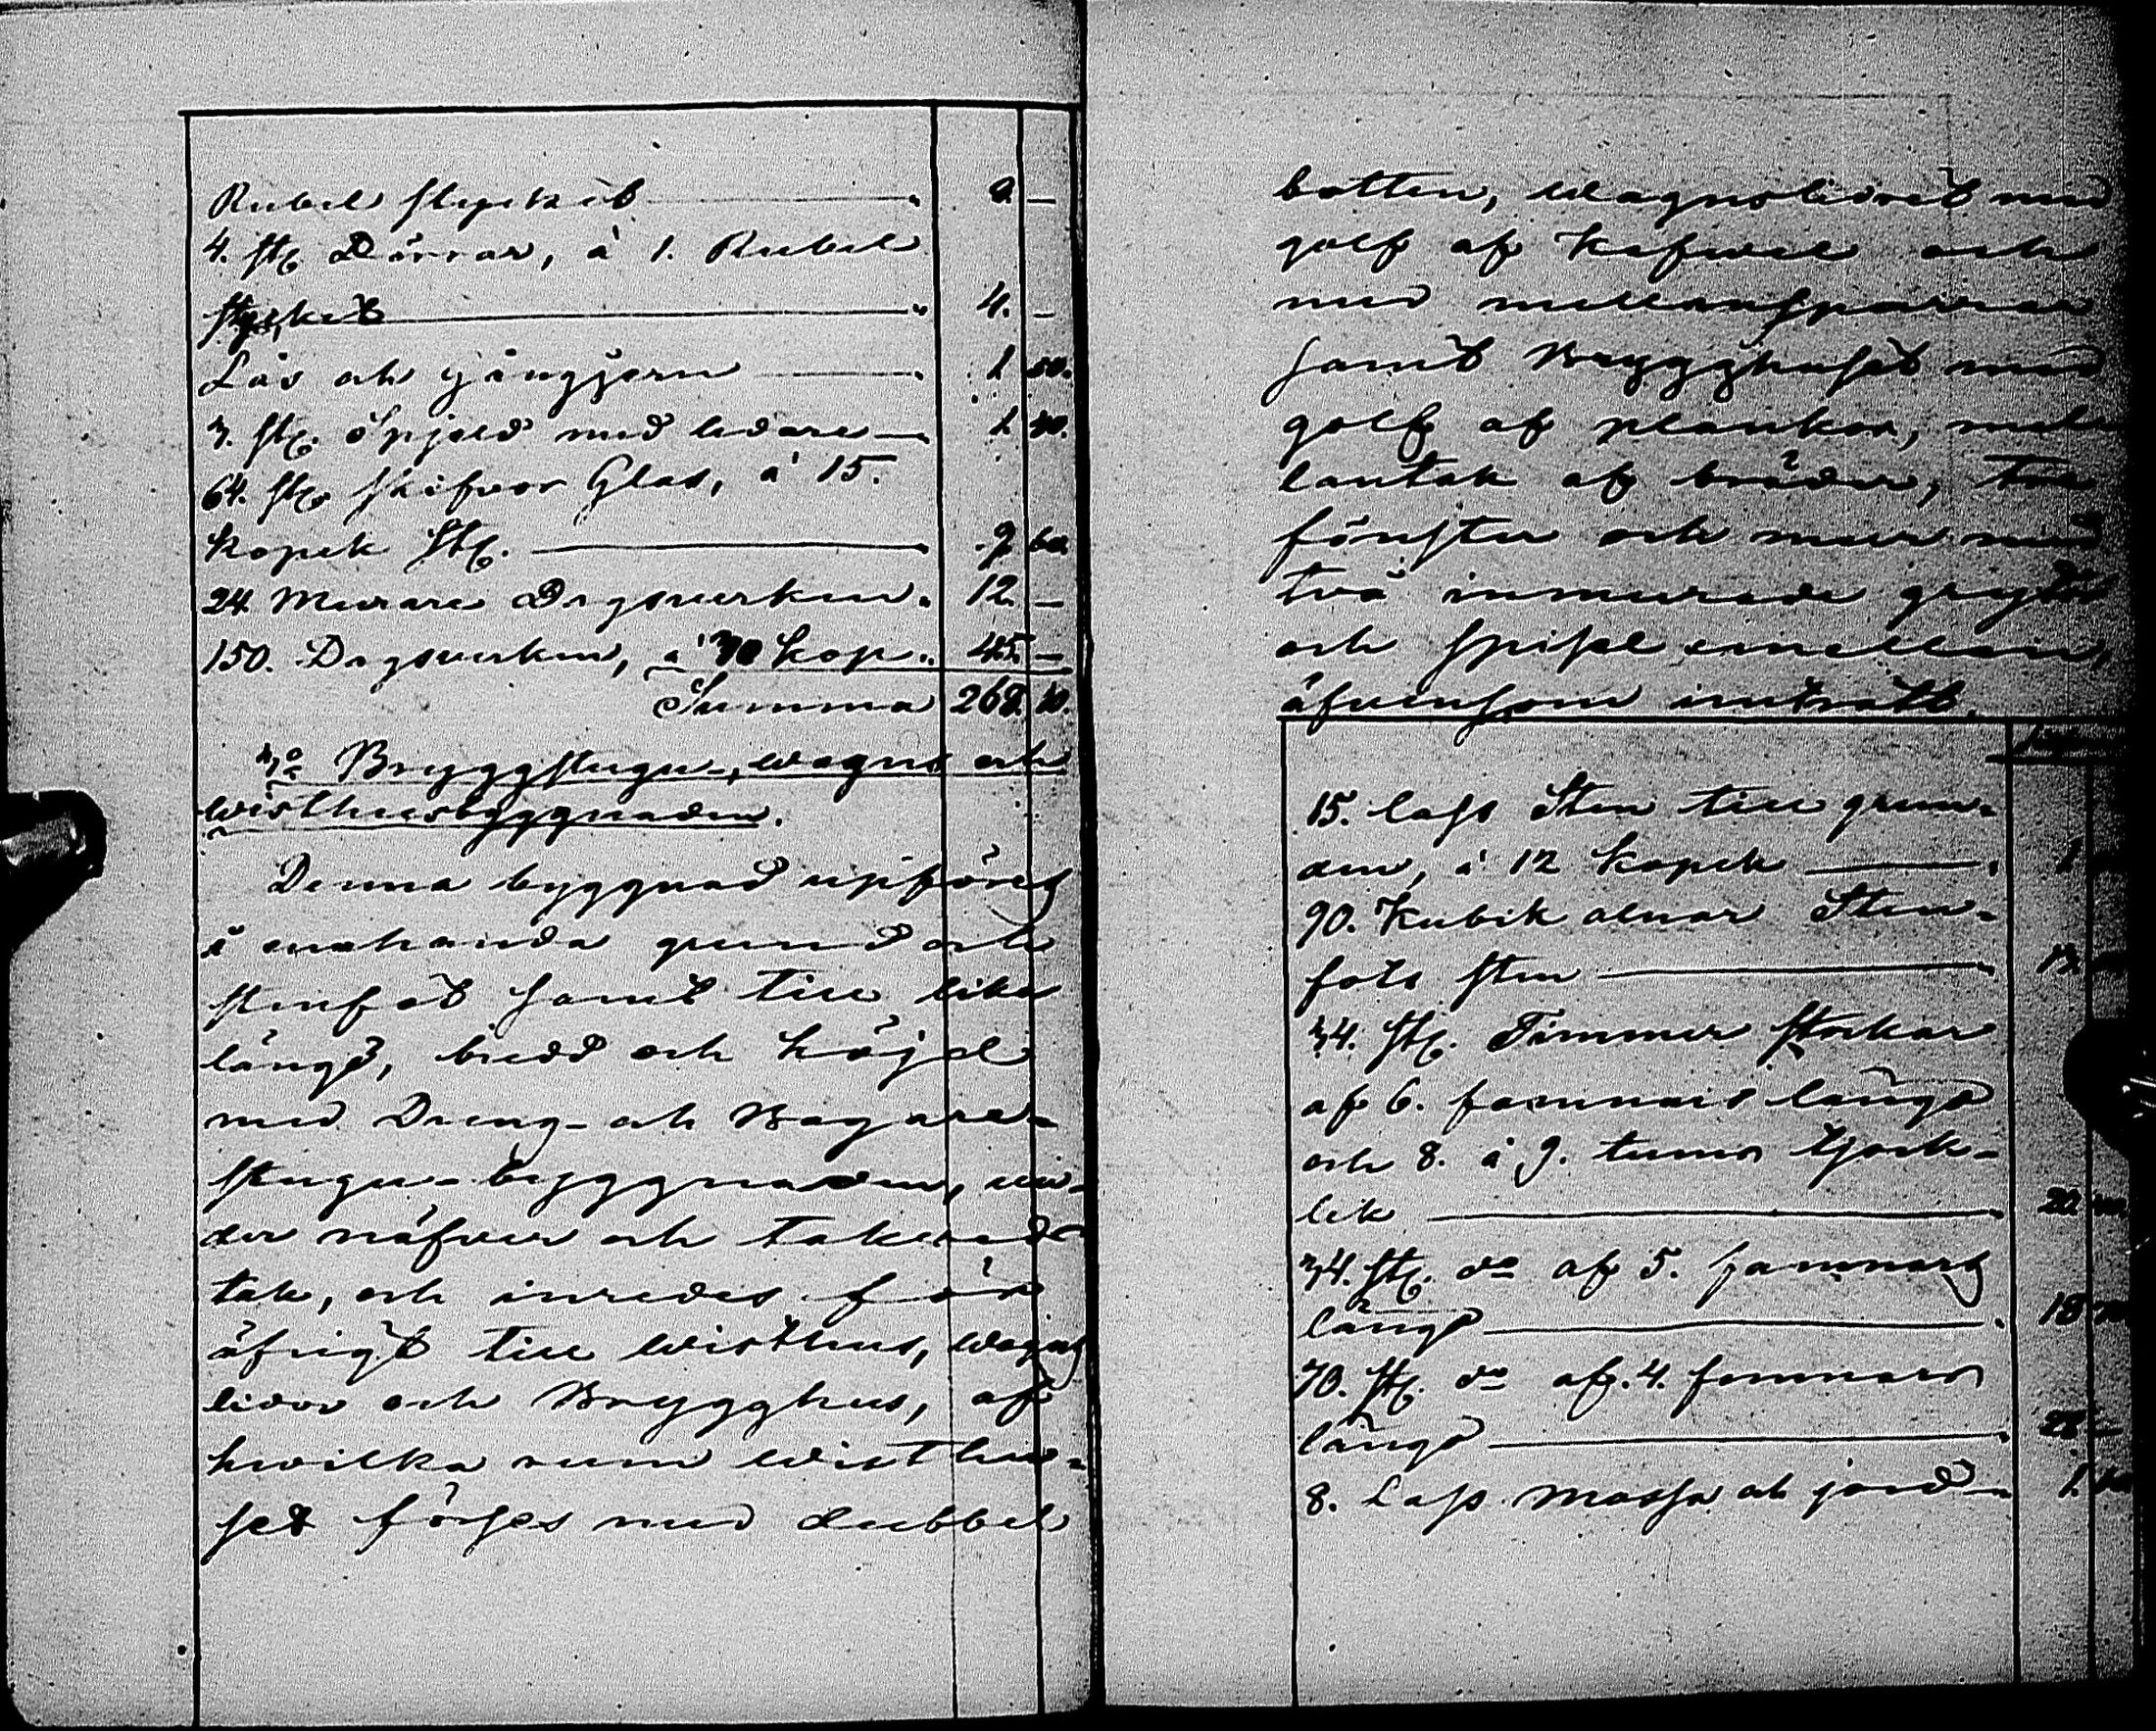 Rubel stycket " 8. —
4. st. Dörrar, à 1. Rubel
stycket " 4. —
Lås och gångjern " 1 50.
3. st. spjeld med ledare " 1 30.
64. st. skifvor Glas, à 15.
kopek st. " 9 60
24 Murare Dagsverken " 12 —
150. Dagsverken, à 30 kop. " 45. —
Summa 268. 10.
3o Bryggstugu-, wagns och
wisthusbyggnaden.
Denna byggnad upföres
å enahanda grund och
stenfot samt till lika
längd, bredd och höjd
med Dreng- och Bagare-
stugu-byggnaden, un-
der näfver och takved
tak, och inredes för
öfrigt till wisthus, wagns
lider och Brygghus, af
hwilka rum wisthu-
set förses med dubbel
botten, wagnslidret med
golf af kafwel och
med mellansparrar
samt Brygghuset med
golf af plankor, mel-
lantak af bräder, två
fönster och mur med
två inmurade grytor
och spisel emellan,
äfvensom inträtt.
15. lass Sten till grun-
den, à 12 kopek " 1
90. Kubik alnar Sten-
fots sten " 13
34. st. Timmer stockar
af 6. famnars längd
och 8. à 9. tums tjock-
lek " 22
34. st. do af 5. famnars
längd " 18
70. st. do af 4. famnars
längd " 28 —
8. Lass mossa och jord " 1.